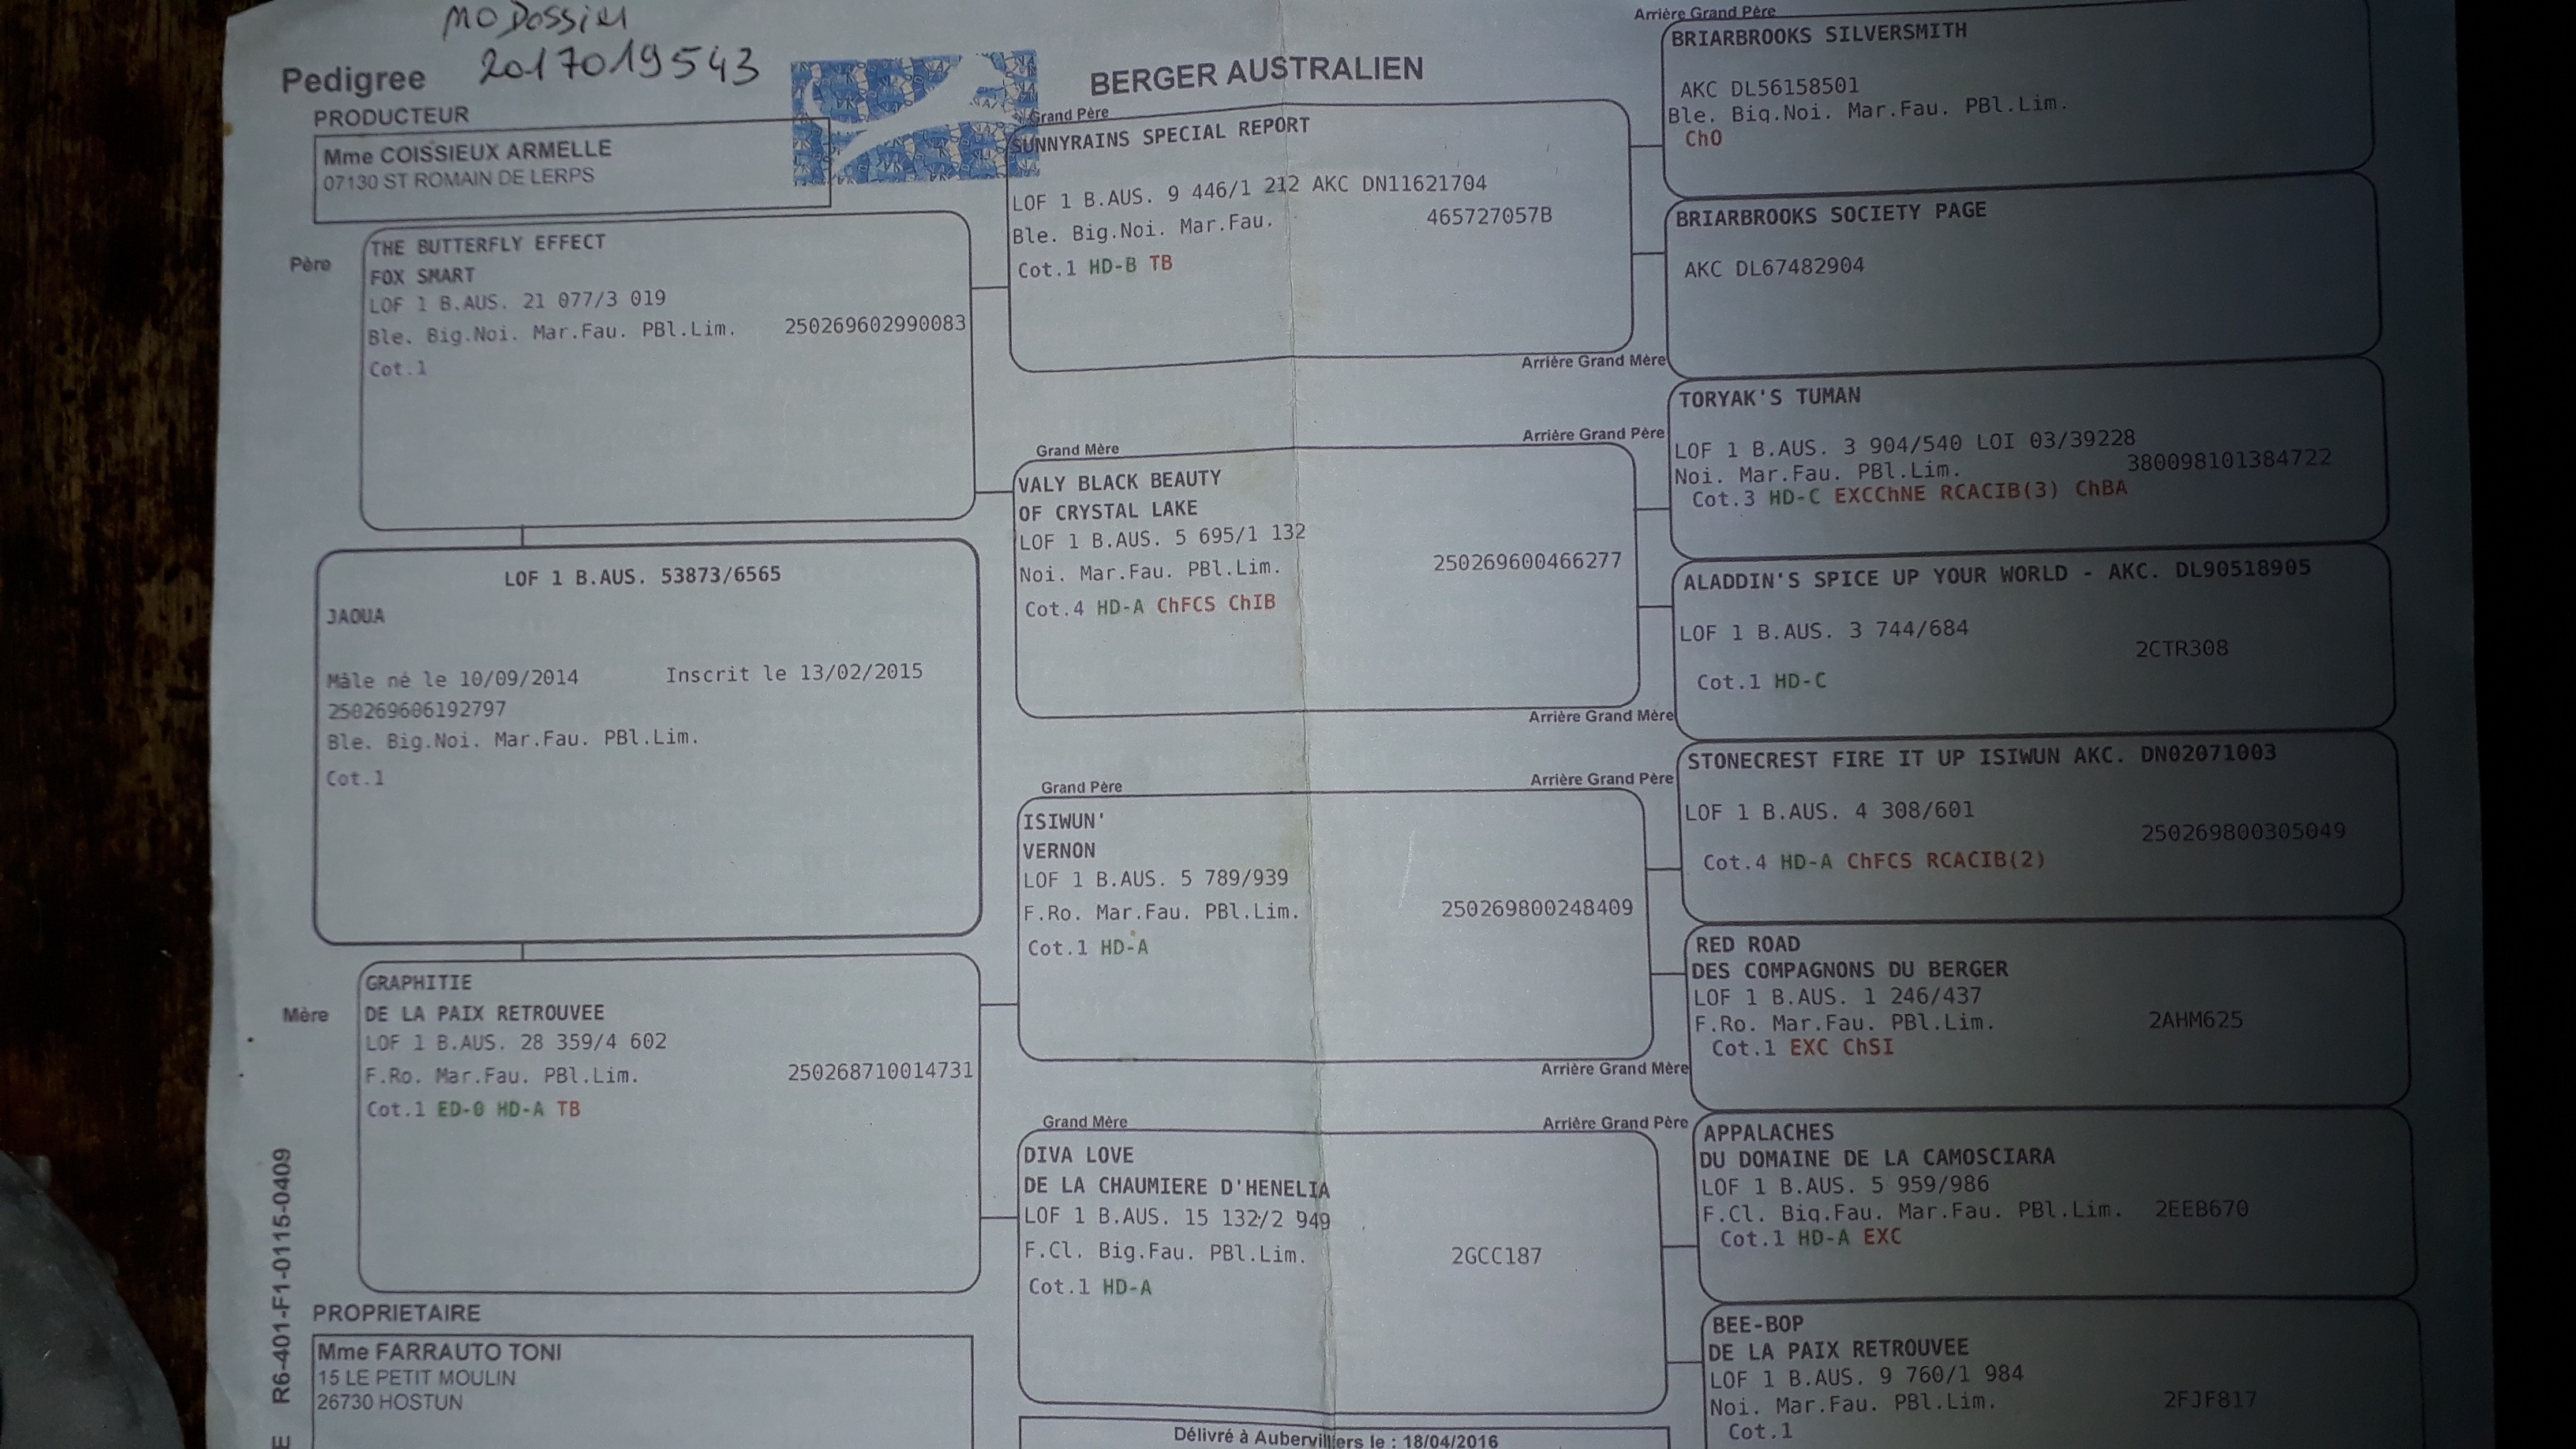 NO Dossier
2017019543
Pedigree
BERGER AUSTRALIEN
PRODUCTEUR
Mme COISSIEUX ARMELLE
07130 ST ROMAIN DE LERPS
Père
THE BUTTERFLY EFFECT
FOX SMART
LOF 1 B.AUS. 21 077/3 019
Ble. Big.Noi. Mar.Fau. PBl.Lim. 250269602990083
Cot.1
LOF 1 B.AUS. 53873/6565
JAOUA
Mâle né le 10/09/2014 Inscrit le 13/02/2015
250269606192797
Ble. Big.Noi. Mar.Fau. PBl.Lim.
Cot.1
Mère
GRAPHITIE
DE LA PAIX RETROUVEE
LOF 1 B.AUS. 28 359/4 602
F.Ro. Mar.Fau. PBl.Lim. 250268710014731
Cot.1 ED-0 HD-A TB
PROPRIETAIRE
Mme FARRAUTO TONI
15 LE PETIT MOULIN
26730 HOSTUN
R6-401-F1-0115-0409
Grand Père
SUNNYRAINS SPECIAL REPORT
LOF 1 B.AUS. 9 446/1 212 AKC DN11621704
Ble. Big.Noi. Mar.Fau. 465727057B
Cot.1 HD-B TB
Grand Mère
VALY BLACK BEAUTY
OF CRYSTAL LAKE
LOF 1 B.AUS. 5 695/1 132
Noi. Mar.Fau. PBl.Lim. 250269600466277
Cot.4 HD-A ChFCS ChIB
Grand Père
ISIWUN'
VERNON
LOF 1 B.AUS. 5 789/939
F.Ro. Mar.Fau. PBl.Lim. 250269800248409
Cot.1 HD-A
Grand Mère
DIVA LOVE
DE LA CHAUMIERE D'HENELIA
LOF 1 B.AUS. 15 132/2 949
F.Cl. Big.Fau. PBl.Lim. 2GCC187
Cot.1 HD-A
Délivré à Aubervilliers le : 18/04/2016
Arrière Grand Père
BRIARBROOKS SILVERSMITH
AKC DL56158501
Ble. Big.Noi. Mar.Fau. PBl.Lim.
ChO
BRIARBROOKS SOCIETY PAGE
AKC DL67482904
Arrière Grand Mère
Arrière Grand Père
TORYAK'S TUMAN
LOF 1 B.AUS. 3 904/540 LOI 03/39228
Noi. Mar.Fau. PBl.Lim. 380098101384722
Cot.3 HD-C EXCChNE RCACIB(3) ChBA
ALADDIN'S SPICE UP YOUR WORLD - AKC. DL90518905
LOF 1 B.AUS. 3 744/684
2CTR308
Cot.1 HD-C
Arrière Grand Mère
Arrière Grand Père
STONECREST FIRE IT UP ISIWUN AKC. DN02071003
LOF 1 B.AUS. 4 308/601
250269800305049
Cot.4 HD-A ChFCS RCACIB(2)
RED ROAD
DES COMPAGNONS DU BERGER
LOF 1 B.AUS. 1 246/437
F.Ro. Mar.Fau. PBl.Lim. 2AHM625
Cot.1 EXC ChSI
Arrière Grand Mère
Arrière Grand Père
APPALACHES
DU DOMAINE DE LA CAMOSCIARA
LOF 1 B.AUS. 5 959/986
F.Cl. Big.Fau. Mar.Fau. PBl.Lim. 2EEB670
Cot.1 HD-A EXC
BEE-BOP
DE LA PAIX RETROUVEE
LOF 1 B.AUS. 9 760/1 984
Noi. Mar.Fau. PBl.Lim. 2FJF817
Cot.1